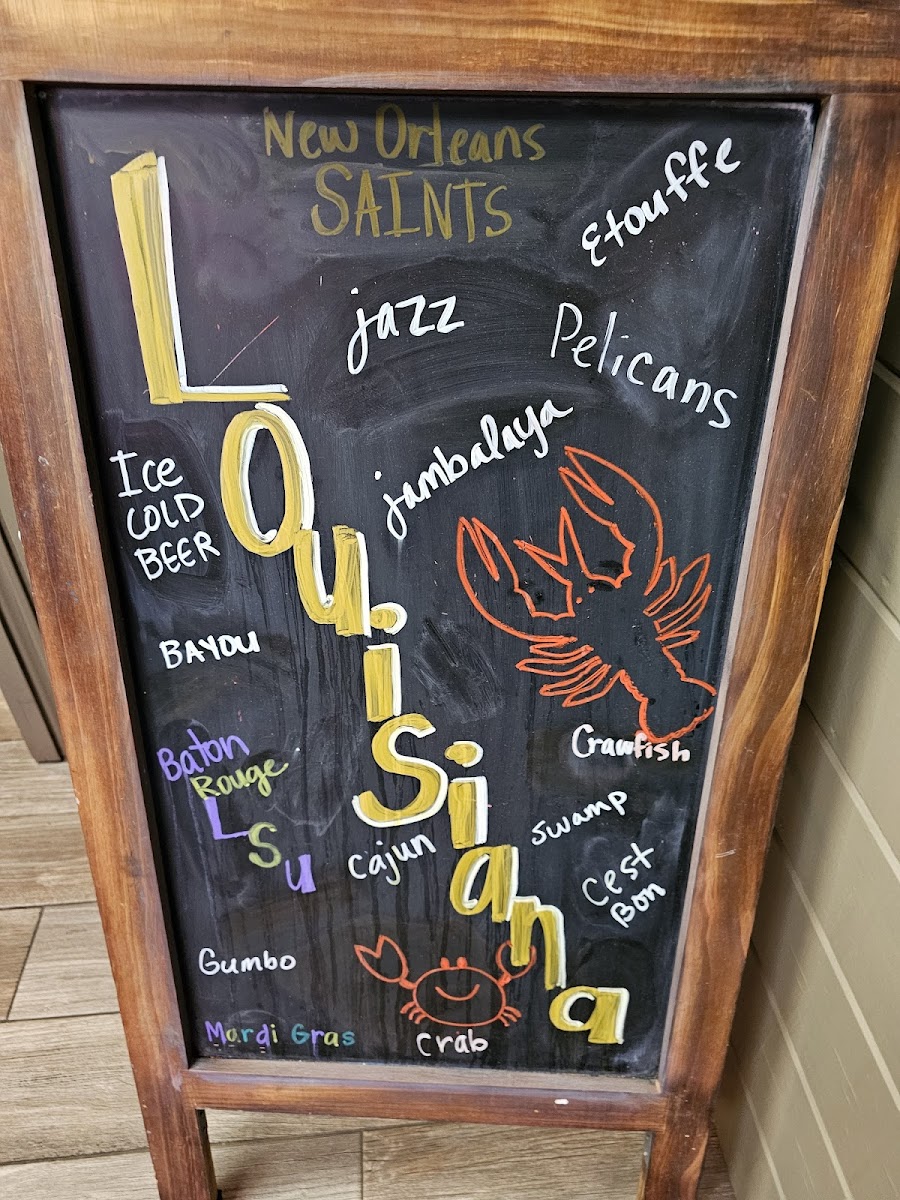 New Orleans
SAINTS
Etouffe
jazz
Pelicans
Louisiana
jambalaya
Ice
COLD
BEER
BAYOU
Crawfish
Baton
Rouge
LSU
Cajun
swamp
Cest
Bon
Gumbo
Mardi Gras
crab